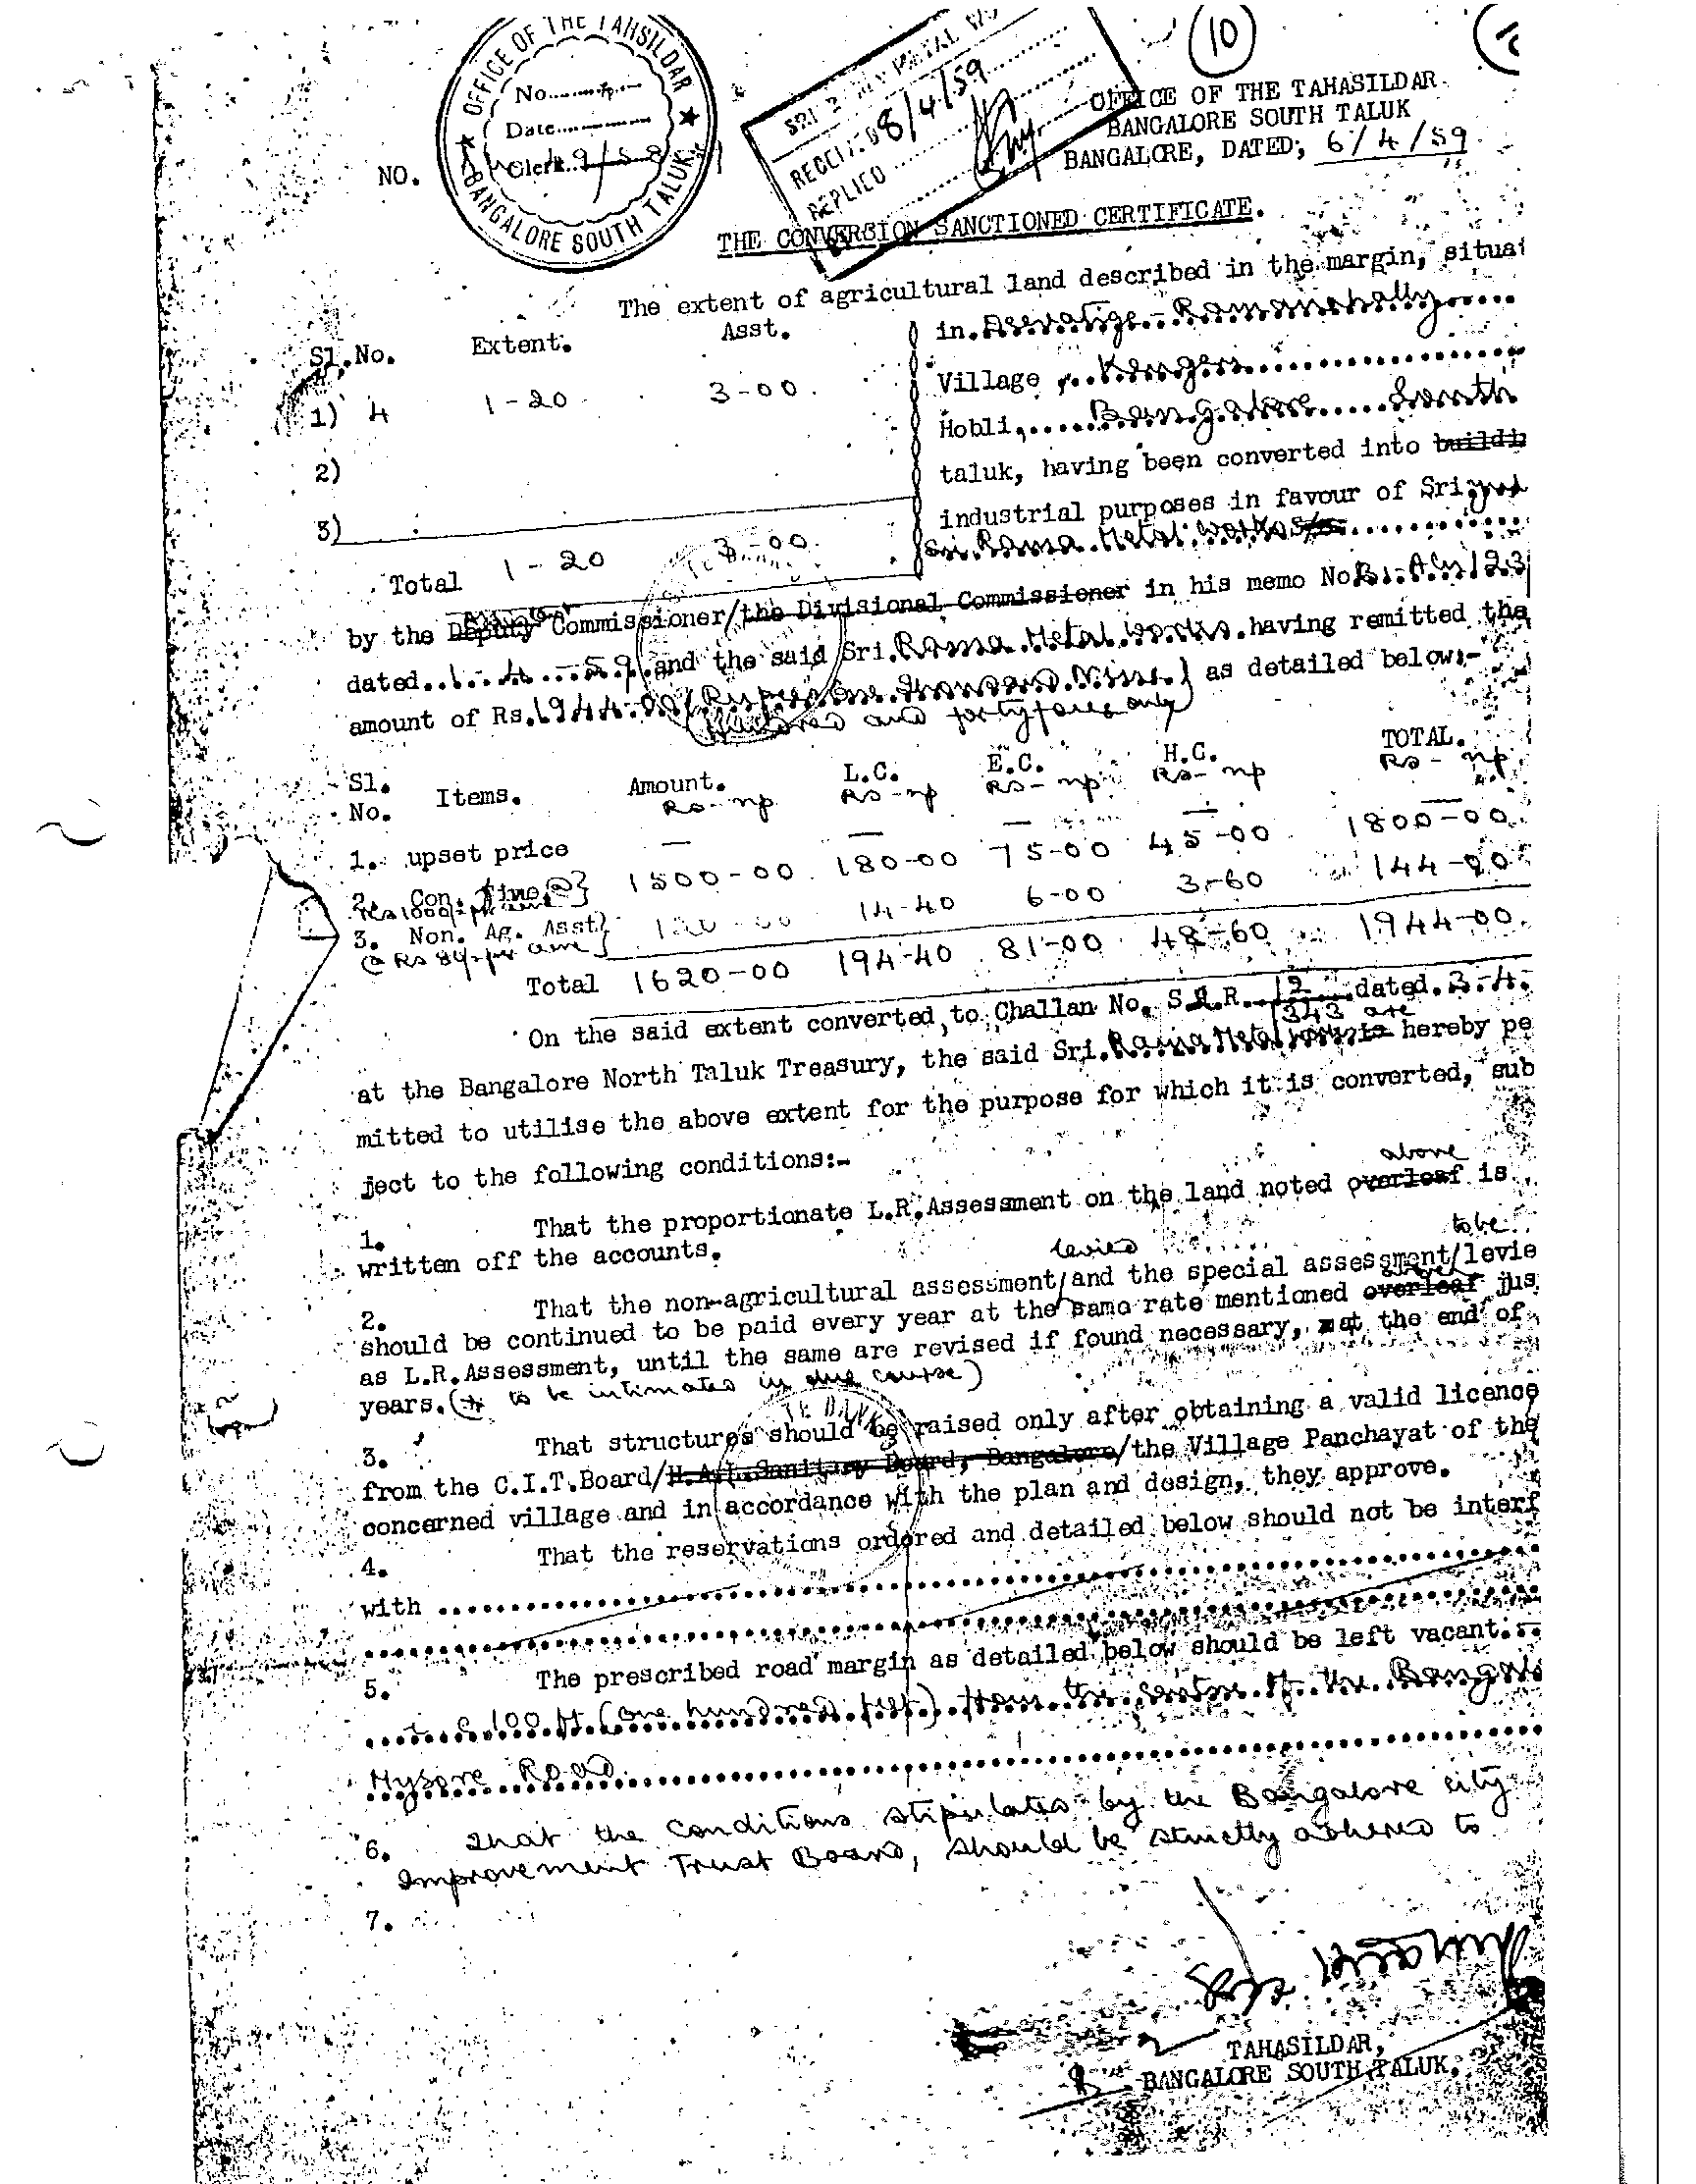 OFFICE OF THE TAHSILDAR
No.
Date
Clerk
BANGALORE SOUTH TALUK
RECEIVED 8/4/59
REPLIED
10
OFFICE OF THE TAHASILDAR
BANGALORE SOUTH TALUK
NO.
BANGALORE, DATED; 6/4/59
THE CONVERSION SANCTIONED CERTIFICATE.
The extent of agricultural land described in the margin, situat
Sl.No. Extent. Asst.
in
Village Kengeri
1) 4 1-20 3-00
Hobli, Bangalore South
2)
taluk, having been converted into buildin
3)
industrial purposes in favour of Sri
Sri. Rama Metal Works
Total 1-20 3-00
by the Deputy Commissioner/the Divisional Commissioner in his memo No
dated 1-4-59 and the said Sri. Rama Metal Works having remitted the
amount of Rs. 1944.00 (Rupees One Thousand Nine as detailed below:-
Hundred and forty four only)
Sl. No. Items. Amount. L.C. E.C. H.C. TOTAL.
Rs-np Rs-np Rs-np Rs-np Rs-np
1. upset price — — — — —
2. Con. fine @ Rs 1000/- 1500-00 180-00 75-00 45-00 1800-00
3. Non. Ag. Asst @ Rs 80/- per acre 120-00 14-40 6-00 3-60 144-00
Total 1620-00 194-40 81-00 48-60 1944-00
On the said extent converted, to Challan No. S.R.R. 12/343 dated. 3-4-
at the Bangalore North Taluk Treasury, the said Sri. Rama Metal Works is are hereby pe
mitted to utilise the above extent for the purpose for which it is converted, sub
ject to the following conditions:-
above
1. That the proportionate L.R.Assessment on the land noted overleaf is
written off the accounts.
levied to be
2. That the non-agricultural assessment/and the special assessment/levie
should be continued to be paid every year at the same rate mentioned overleaf jus
as L.R.Assessment, until the same are revised if found necessary, at the end of
years. (to be intimated in due course)
3. That structures should be raised only after obtaining a valid licence
from the C.I.T.Board/H.A.L.Sanitary Board, Bangalore/the Village Panchayat of the
concerned village and in accordance with the plan and design, they approve.
4. That the reservations ordered and detailed below should not be interf
with
5. The prescribed road margin as detailed below should be left vacant.
100 ft (one hundred feet) from the centre of the Bangal
Mysore Road.
6. That the conditions stipulated by the Bangalore city
Improvement Trust Board, should be strictly adhered to
7.
TAHASILDAR,
BANGALORE SOUTH TALUK.